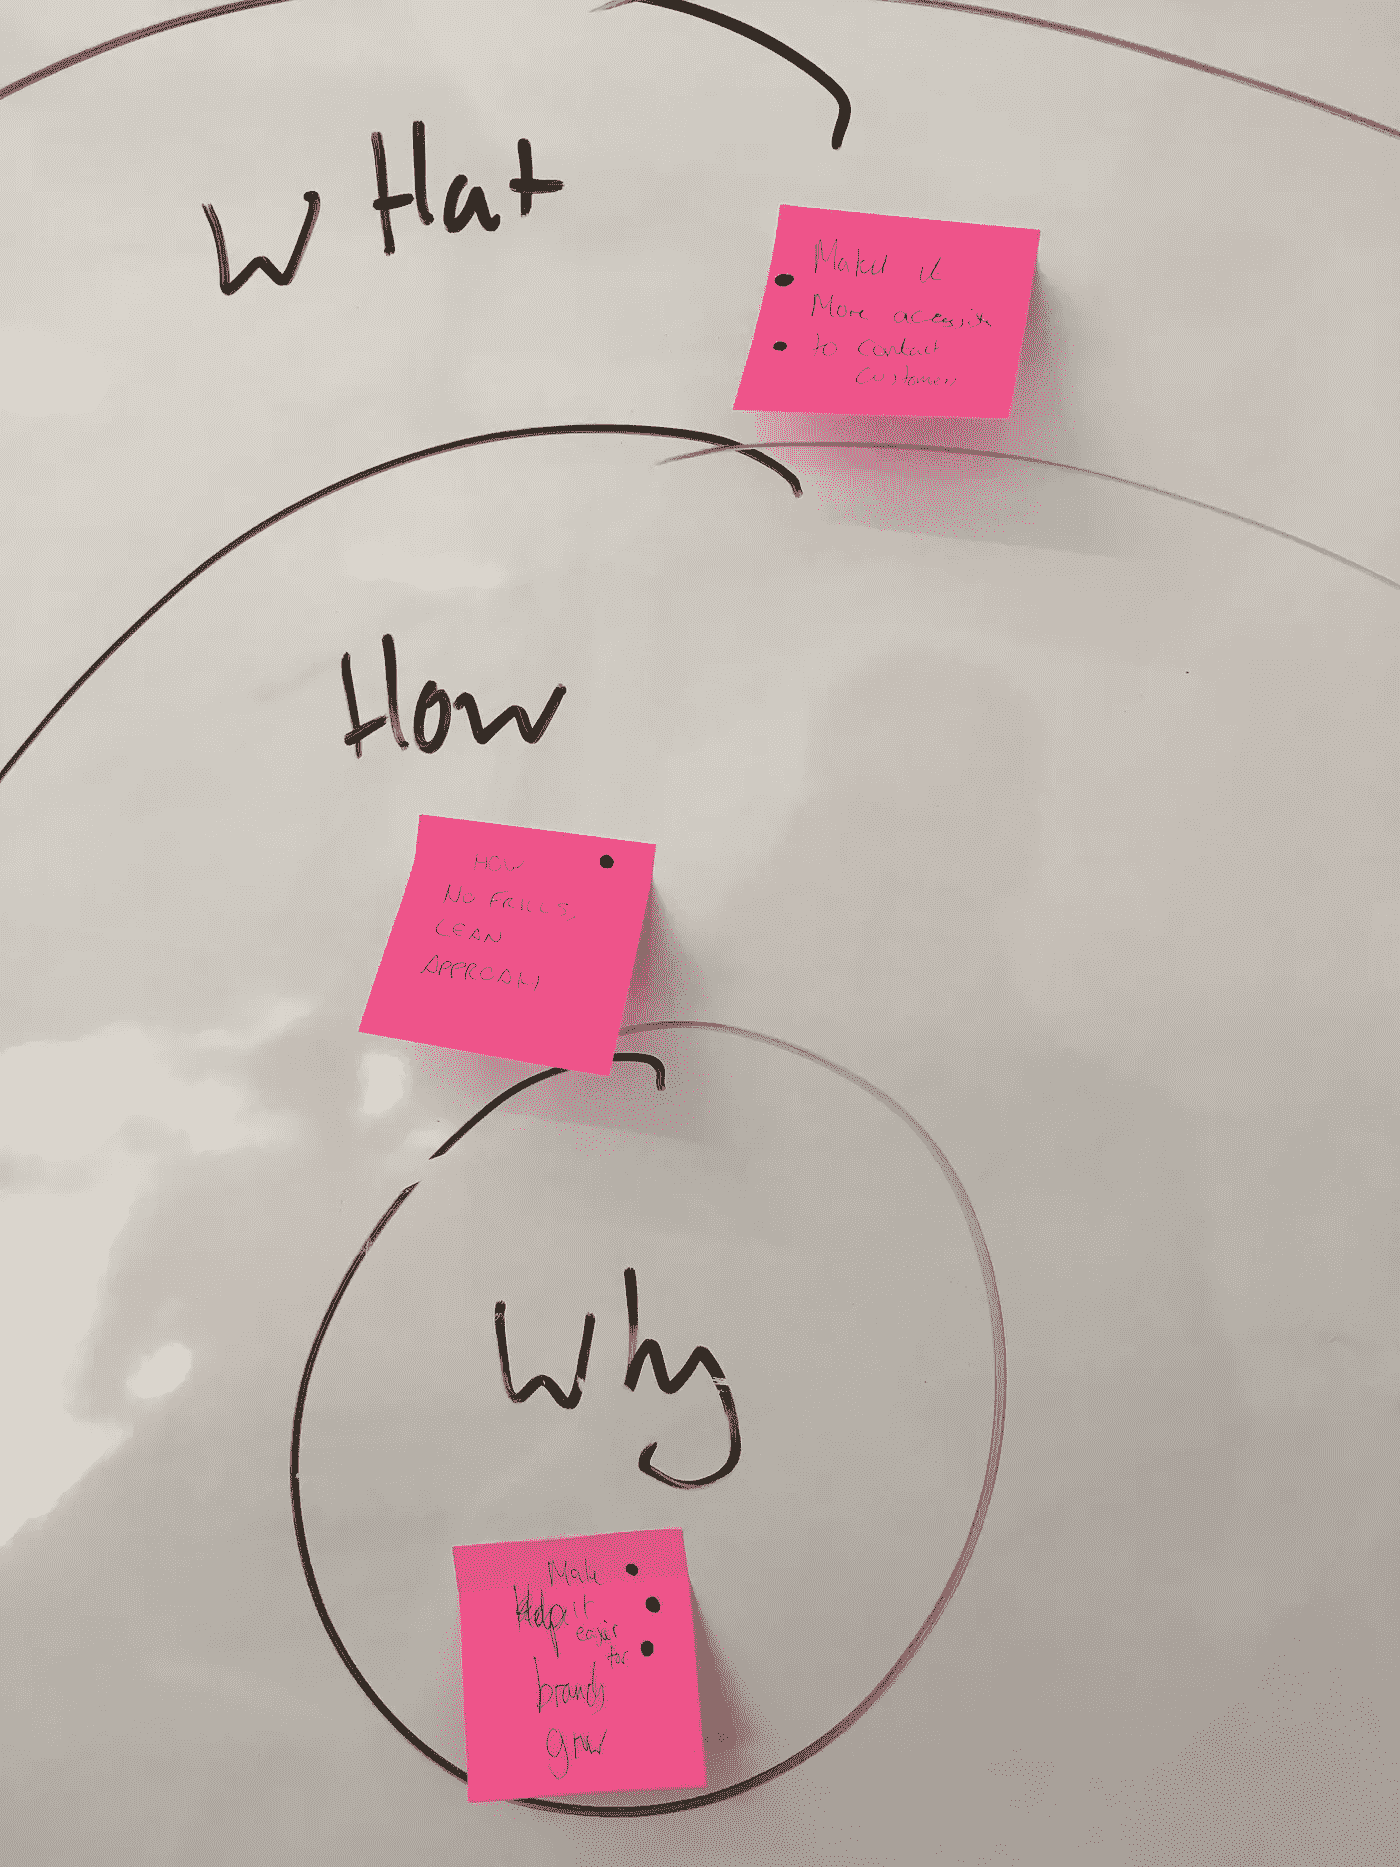 What
Make it
More accessible
to contact
customers
How
HOW
NO FRILLS,
LEAN
APPROACH
Why
Make
Help it
easier
for
brands
grow